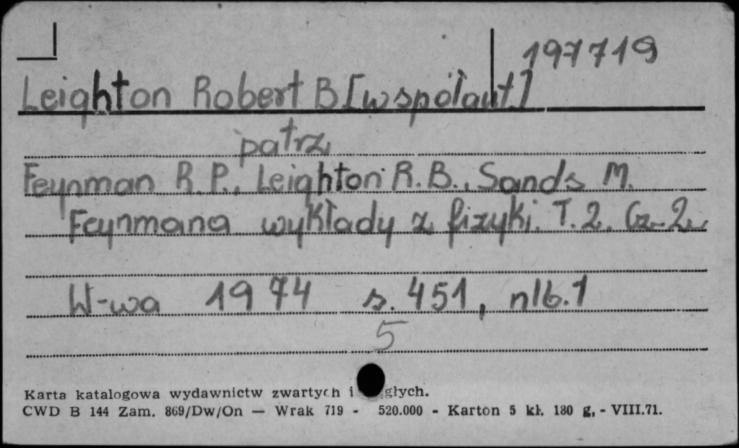 197719
Leighton Robert B [współaut.]
patrz
Feynman R. P., Leighton R. B., Sands M.
Feynmana wykłady z fizyki. T. 2. Cz. 2
W-wa 1974 s. 451, nlb. 1
5
Karta katalogowa wydawnictw zwartych i głych.
CWD B 144 Zam. 869/Dw/On — Wrak 719 - 520.000 - Karton 5 kl. 180 g, - VIII.71.